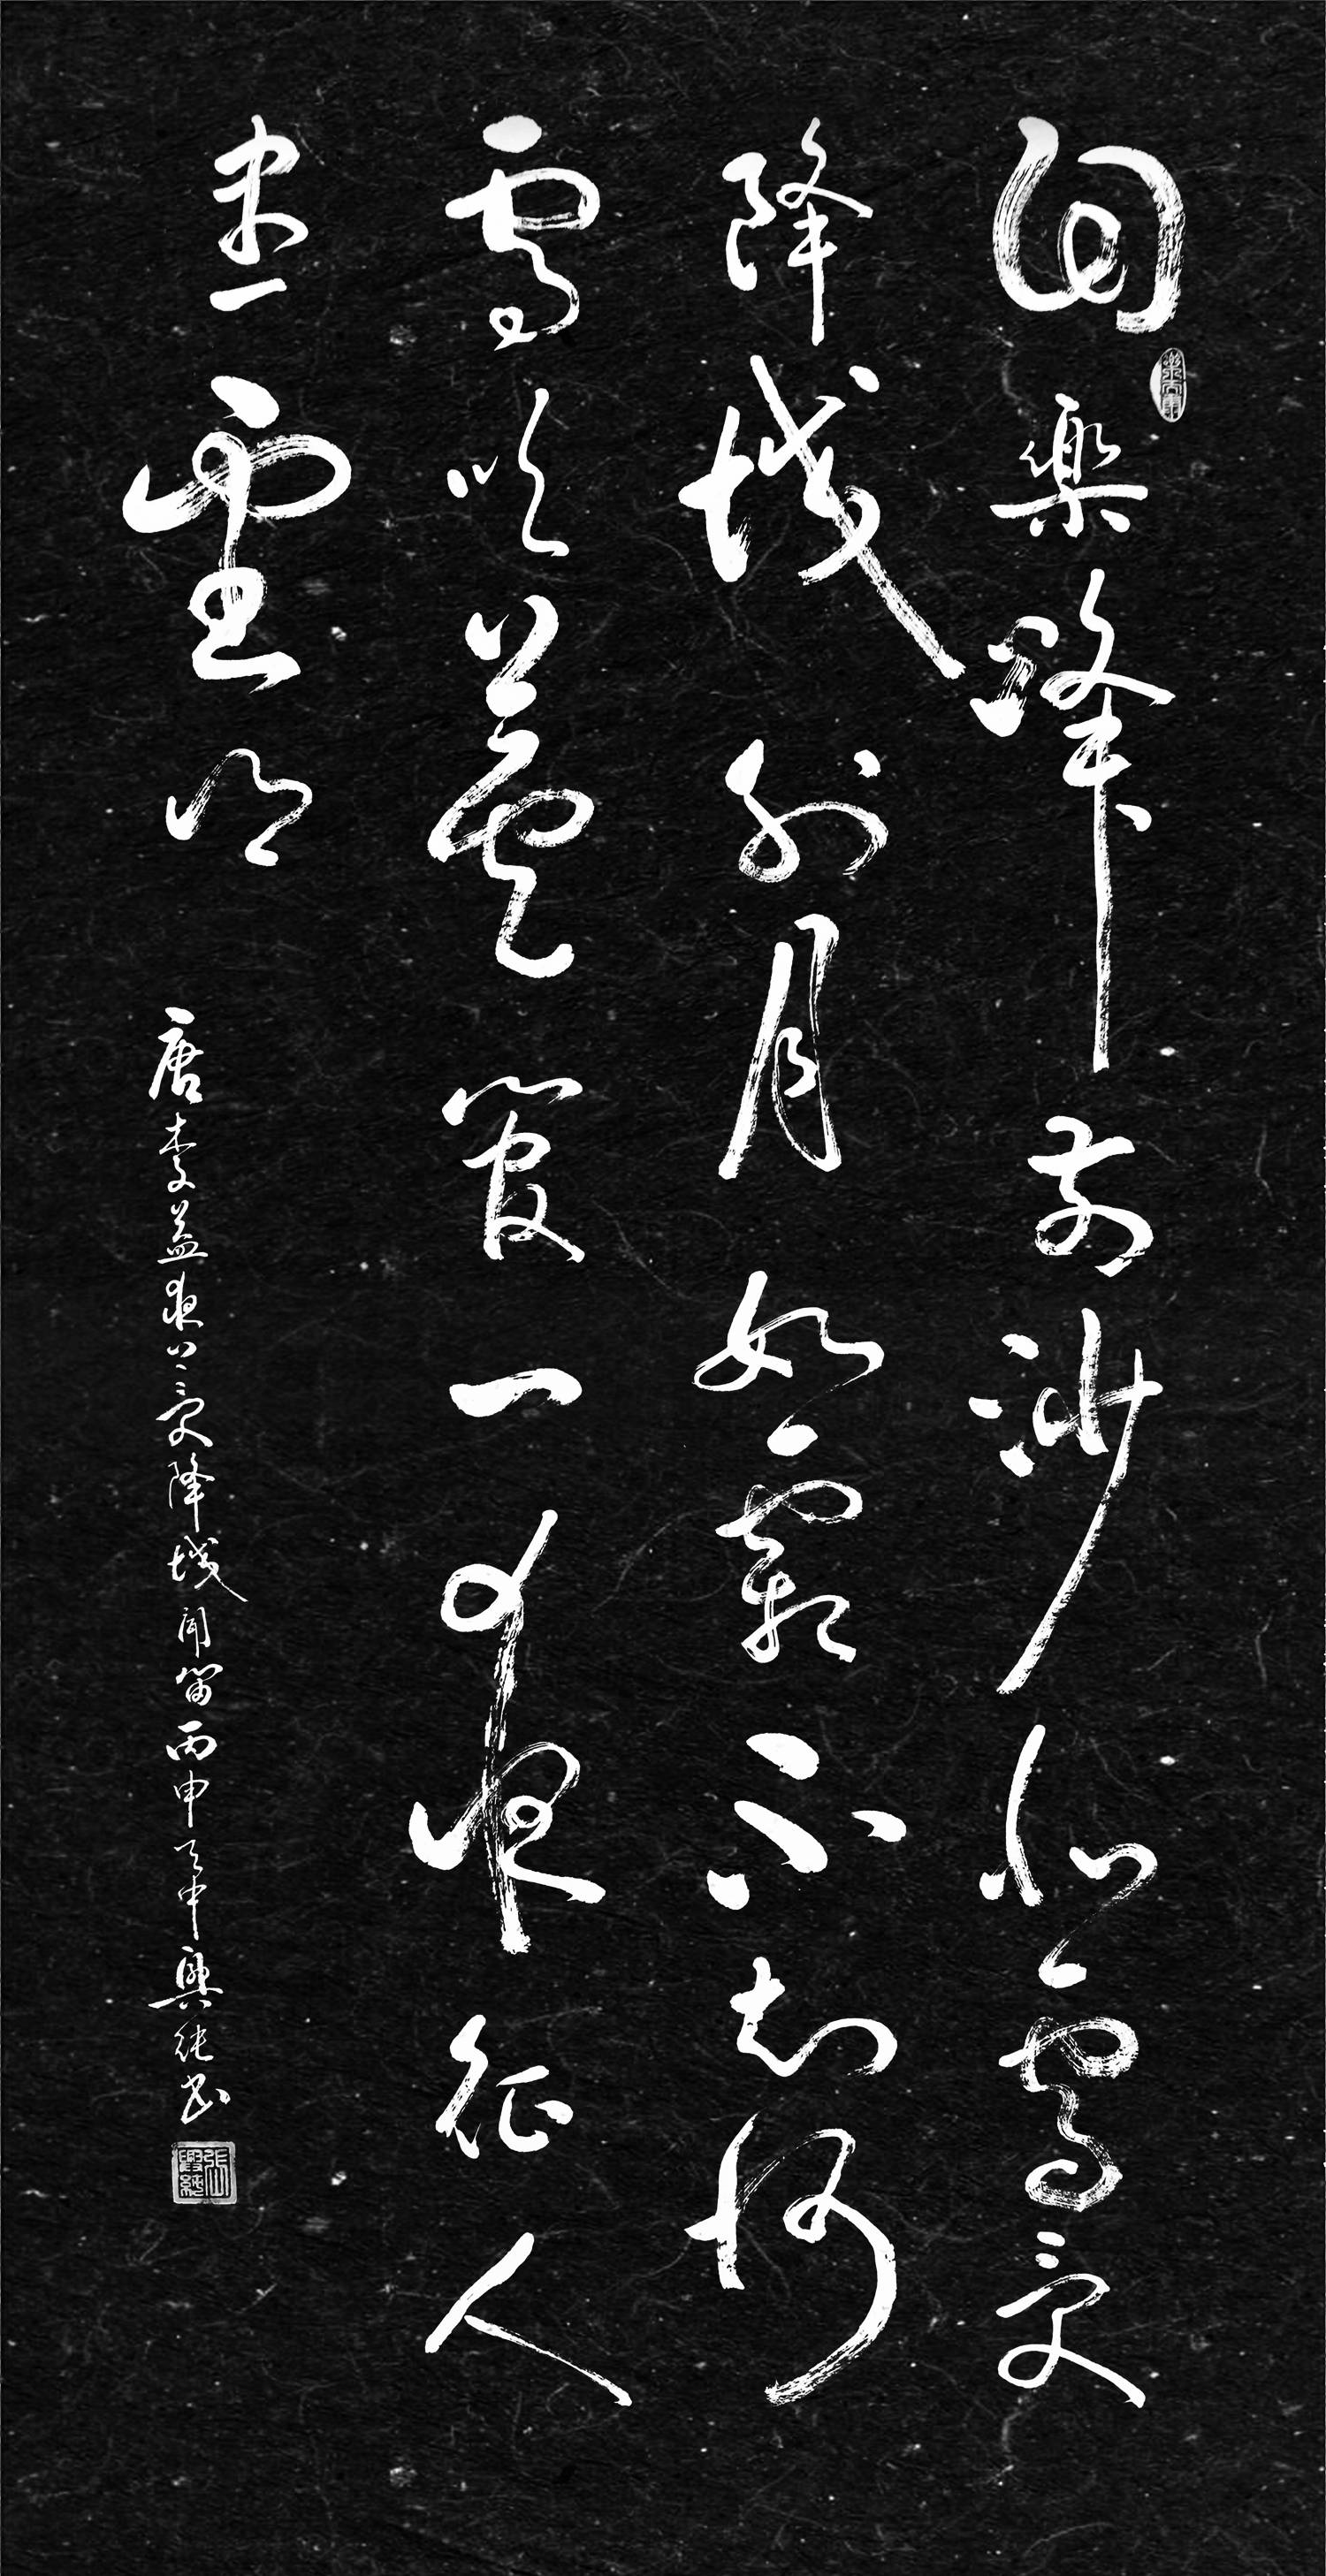 回樂峰前沙似雪受
降城外月如霜不知何
處吹蘆管一夜征人
盡望鄉
唐李益夜上受降城聞笛丙申天中興純書
張興純